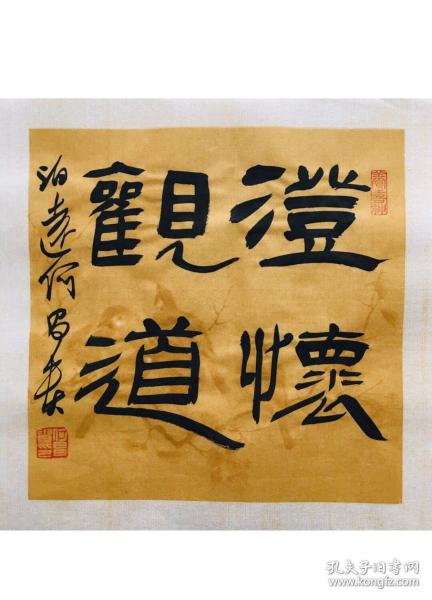 澄懷
觀道
泊遠何昌貴
孔夫子旧书网
www.kongfz.com